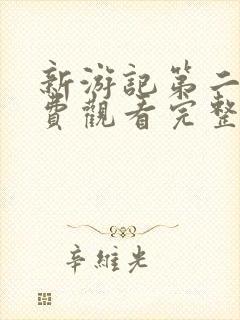 新游記第二
費觀看完整
辛維光